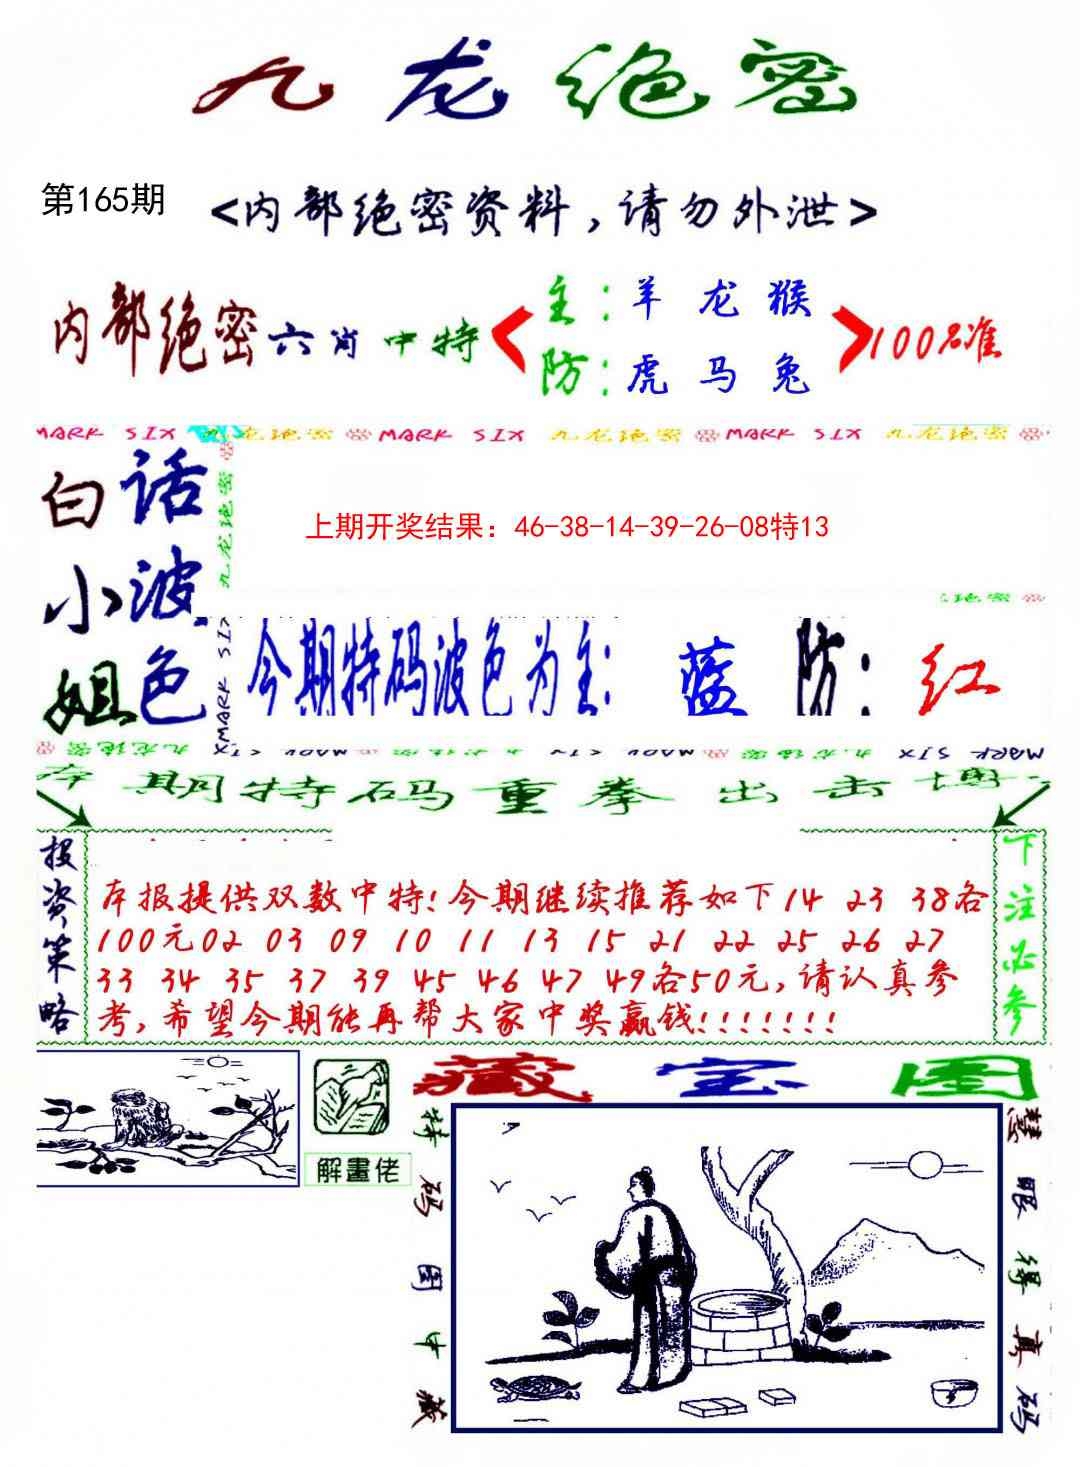 九龙绝密
第165期
<内部绝密资料,请勿外泄>
内部绝密六肖中特
主:羊 龙 猴
防:虎 马 兔
100%准
MARK SIX 九龙绝密 MARK SIX 九龙绝密 MARK SIX 九龙绝密
白话
小波
姐色
九龙绝密
MARK SIX
上期开奖结果：46-38-14-39-26-08特13
绝密
今期特码波色为主: 蓝 防: 红
九龙绝密 MARK SIX 九龙绝密 MARK SIX 九龙绝密 MARK SIX
本期特码重拳出击博
投资策略
本报提供双数中特!今期继续推荐如下14 23 38各
100元02 03 09 10 11 13 15 21 22 25 26 27
33 34 35 37 39 45 46 47 49各50元,请认真参
考,希望今期能再帮大家中奖赢钱!!!!!!!
下注必参
解畫佬
藏宝图
特码图中藏
慧眼得真码